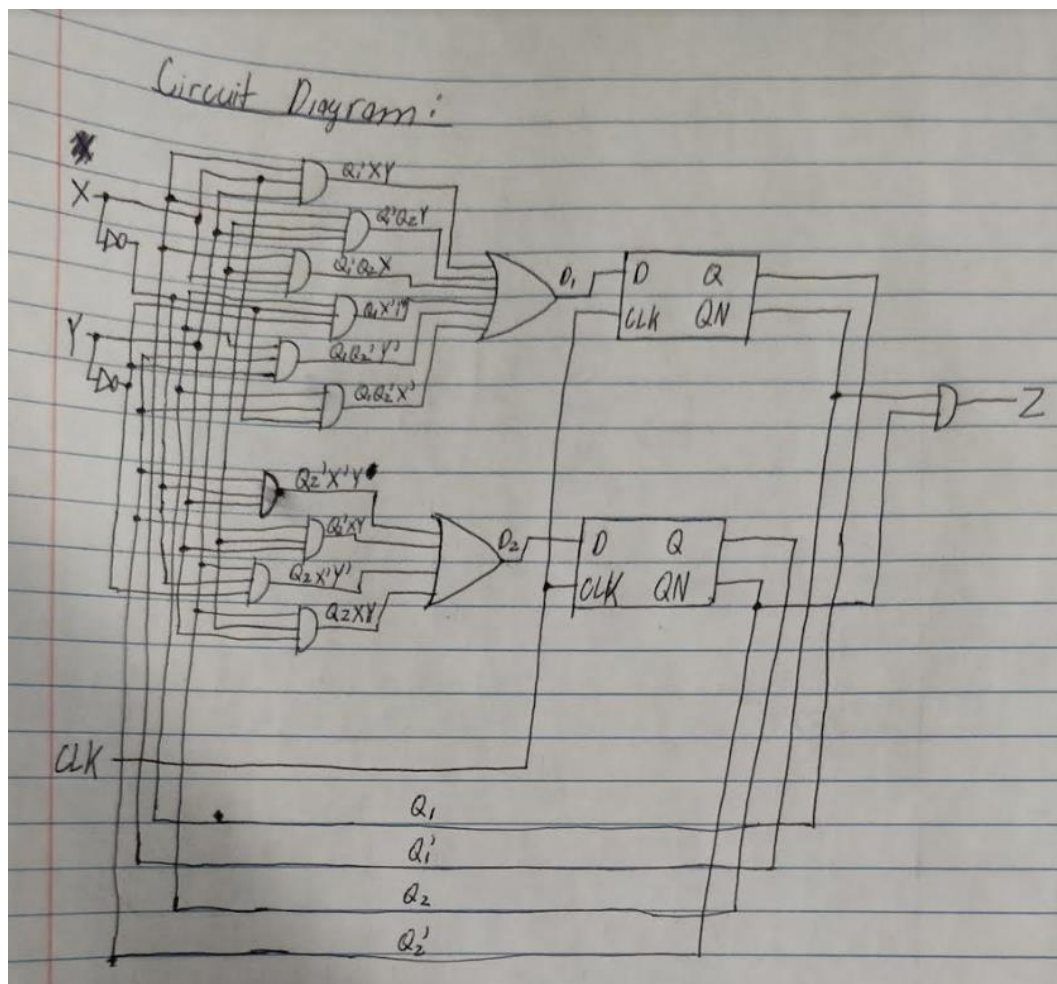 Circuit Diagram:
X
Y
Q1'XY
Q1'Q2Y
Q1'Q2X
Q1Q2'Y'
Q1Q2'X'
D1
D
Q
CLK
QN
Z
Q2'X'Y
Q2'XY
Q2X'Y'
Q2XY
D2
D
Q
CLK
QN
CLK
Q1
Q1'
Q2
Q2'